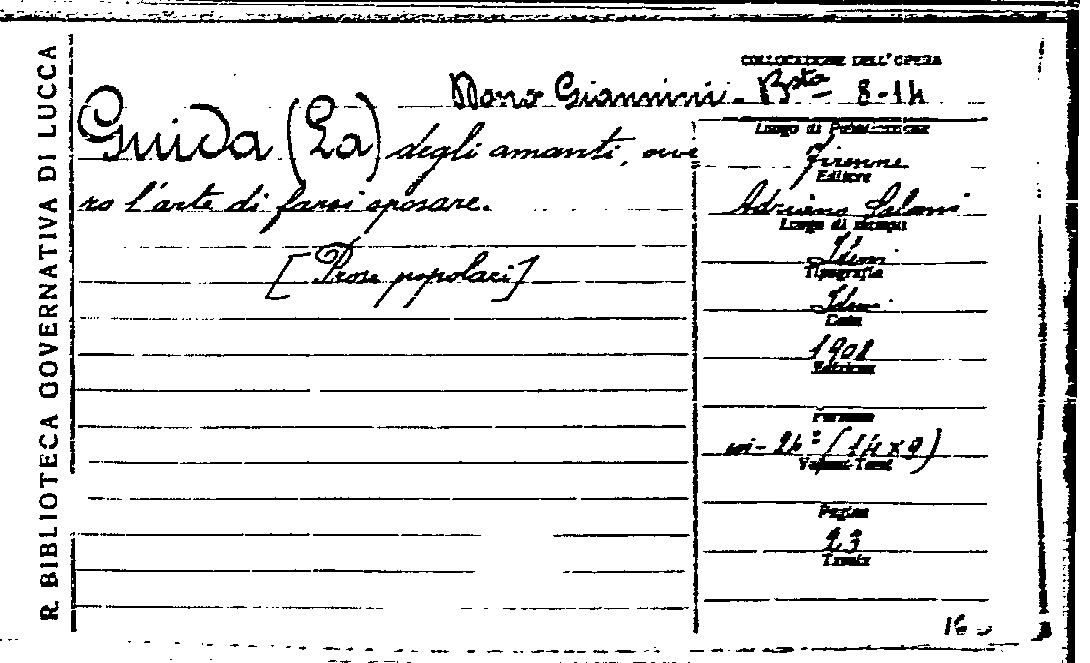 R. BIBLIOTECA GOVERNATIVA DI LUCCA
COLLOCAZIONE DELL'OPERA
Dono Giannini. Bsta 8-14
Guida (La) degli amanti, ove
ro l'arte di farsi sposare.
[Prose popolari]
Luogo di Pubblicazione
Firenze
Editore
Adriano Salani
Luogo di stampa
Idem
Tipografia
Idem
Data
1908
Edizione
Formato
in-24° (14x9)
Volumi-Tomi
Pagine
23
Tavole